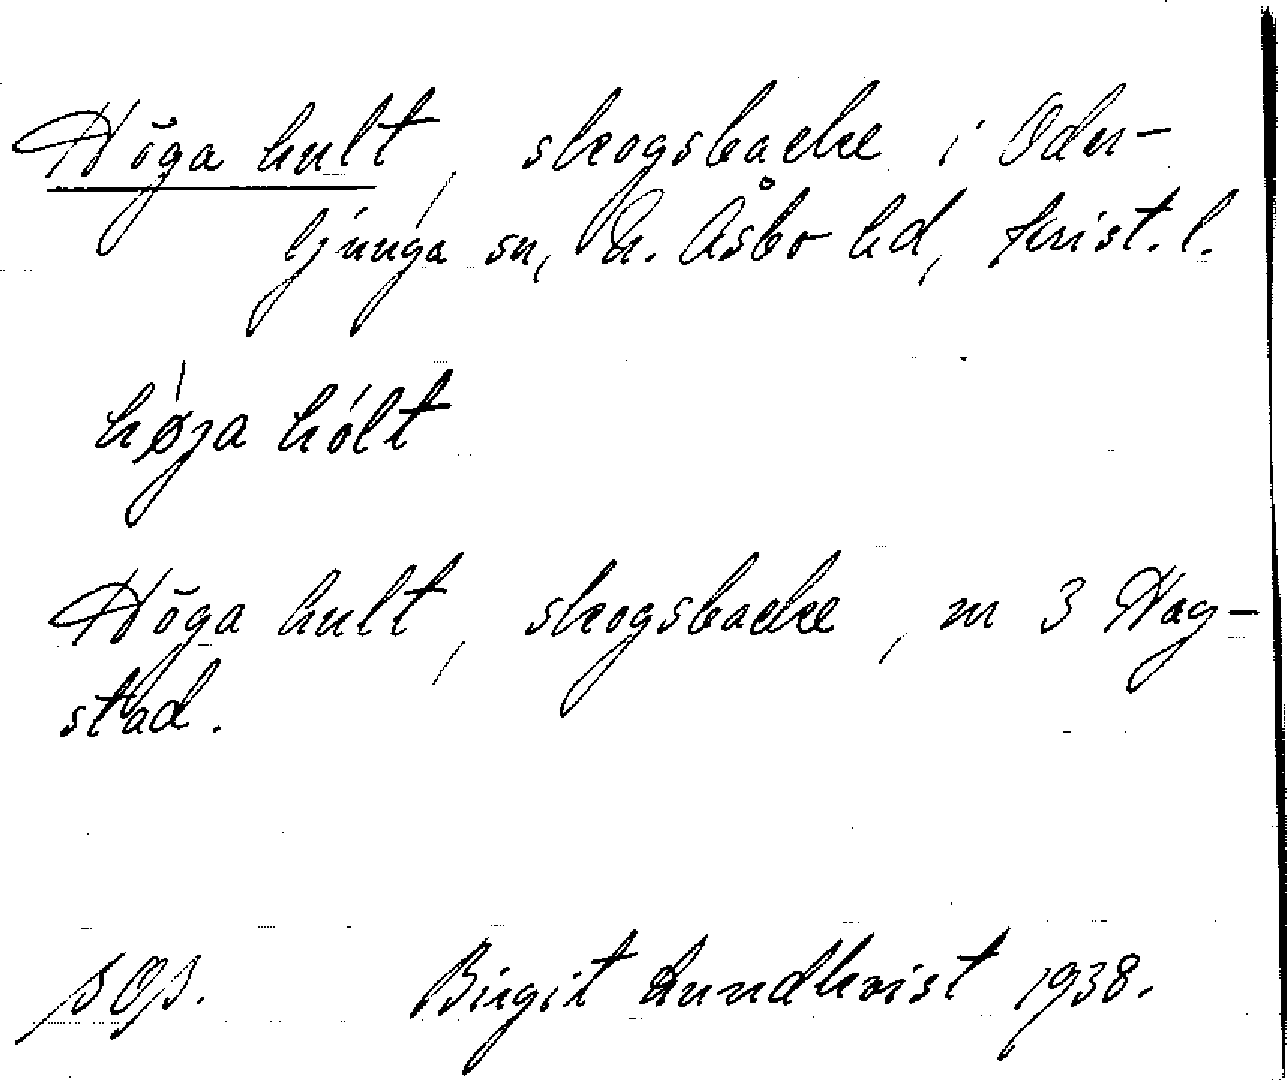 Höga hult, skogsbacke i Oder-
ljunga sn, N. Åsbo hd, Krist. l.
høʒa hólt
Höga hult, skogsbacke, m 3 Hag-
stad.
Birgit Lundkvist 1938.